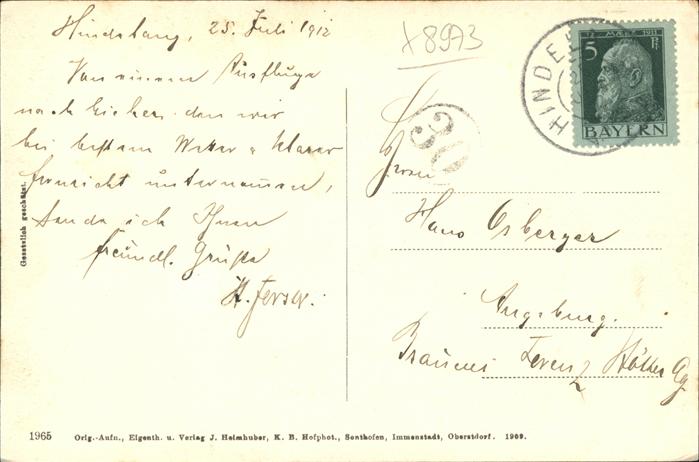 Hindelang, 25. Juli 1912
Von einem Ausfluge
nach hier, den wir
bei bestem Wetter u. klarer
Fernsicht unternommen,
sende ich Ihnen
freundl. Grüße
H.
x 8973
30
HINDEL
12. MÄRZ 1911
5 Pf
BAYERN
Herrn
Hans Osberger
Augsburg.
Brauerei Lorenz Stötter
Gesetzlich geschützt.
1965 Orig.-Aufn., Eigenth. u. Verlag J. Heimhuber, K. B. Hofphot., Sonthofen, Immenstadt, Oberstdorf. 1909.